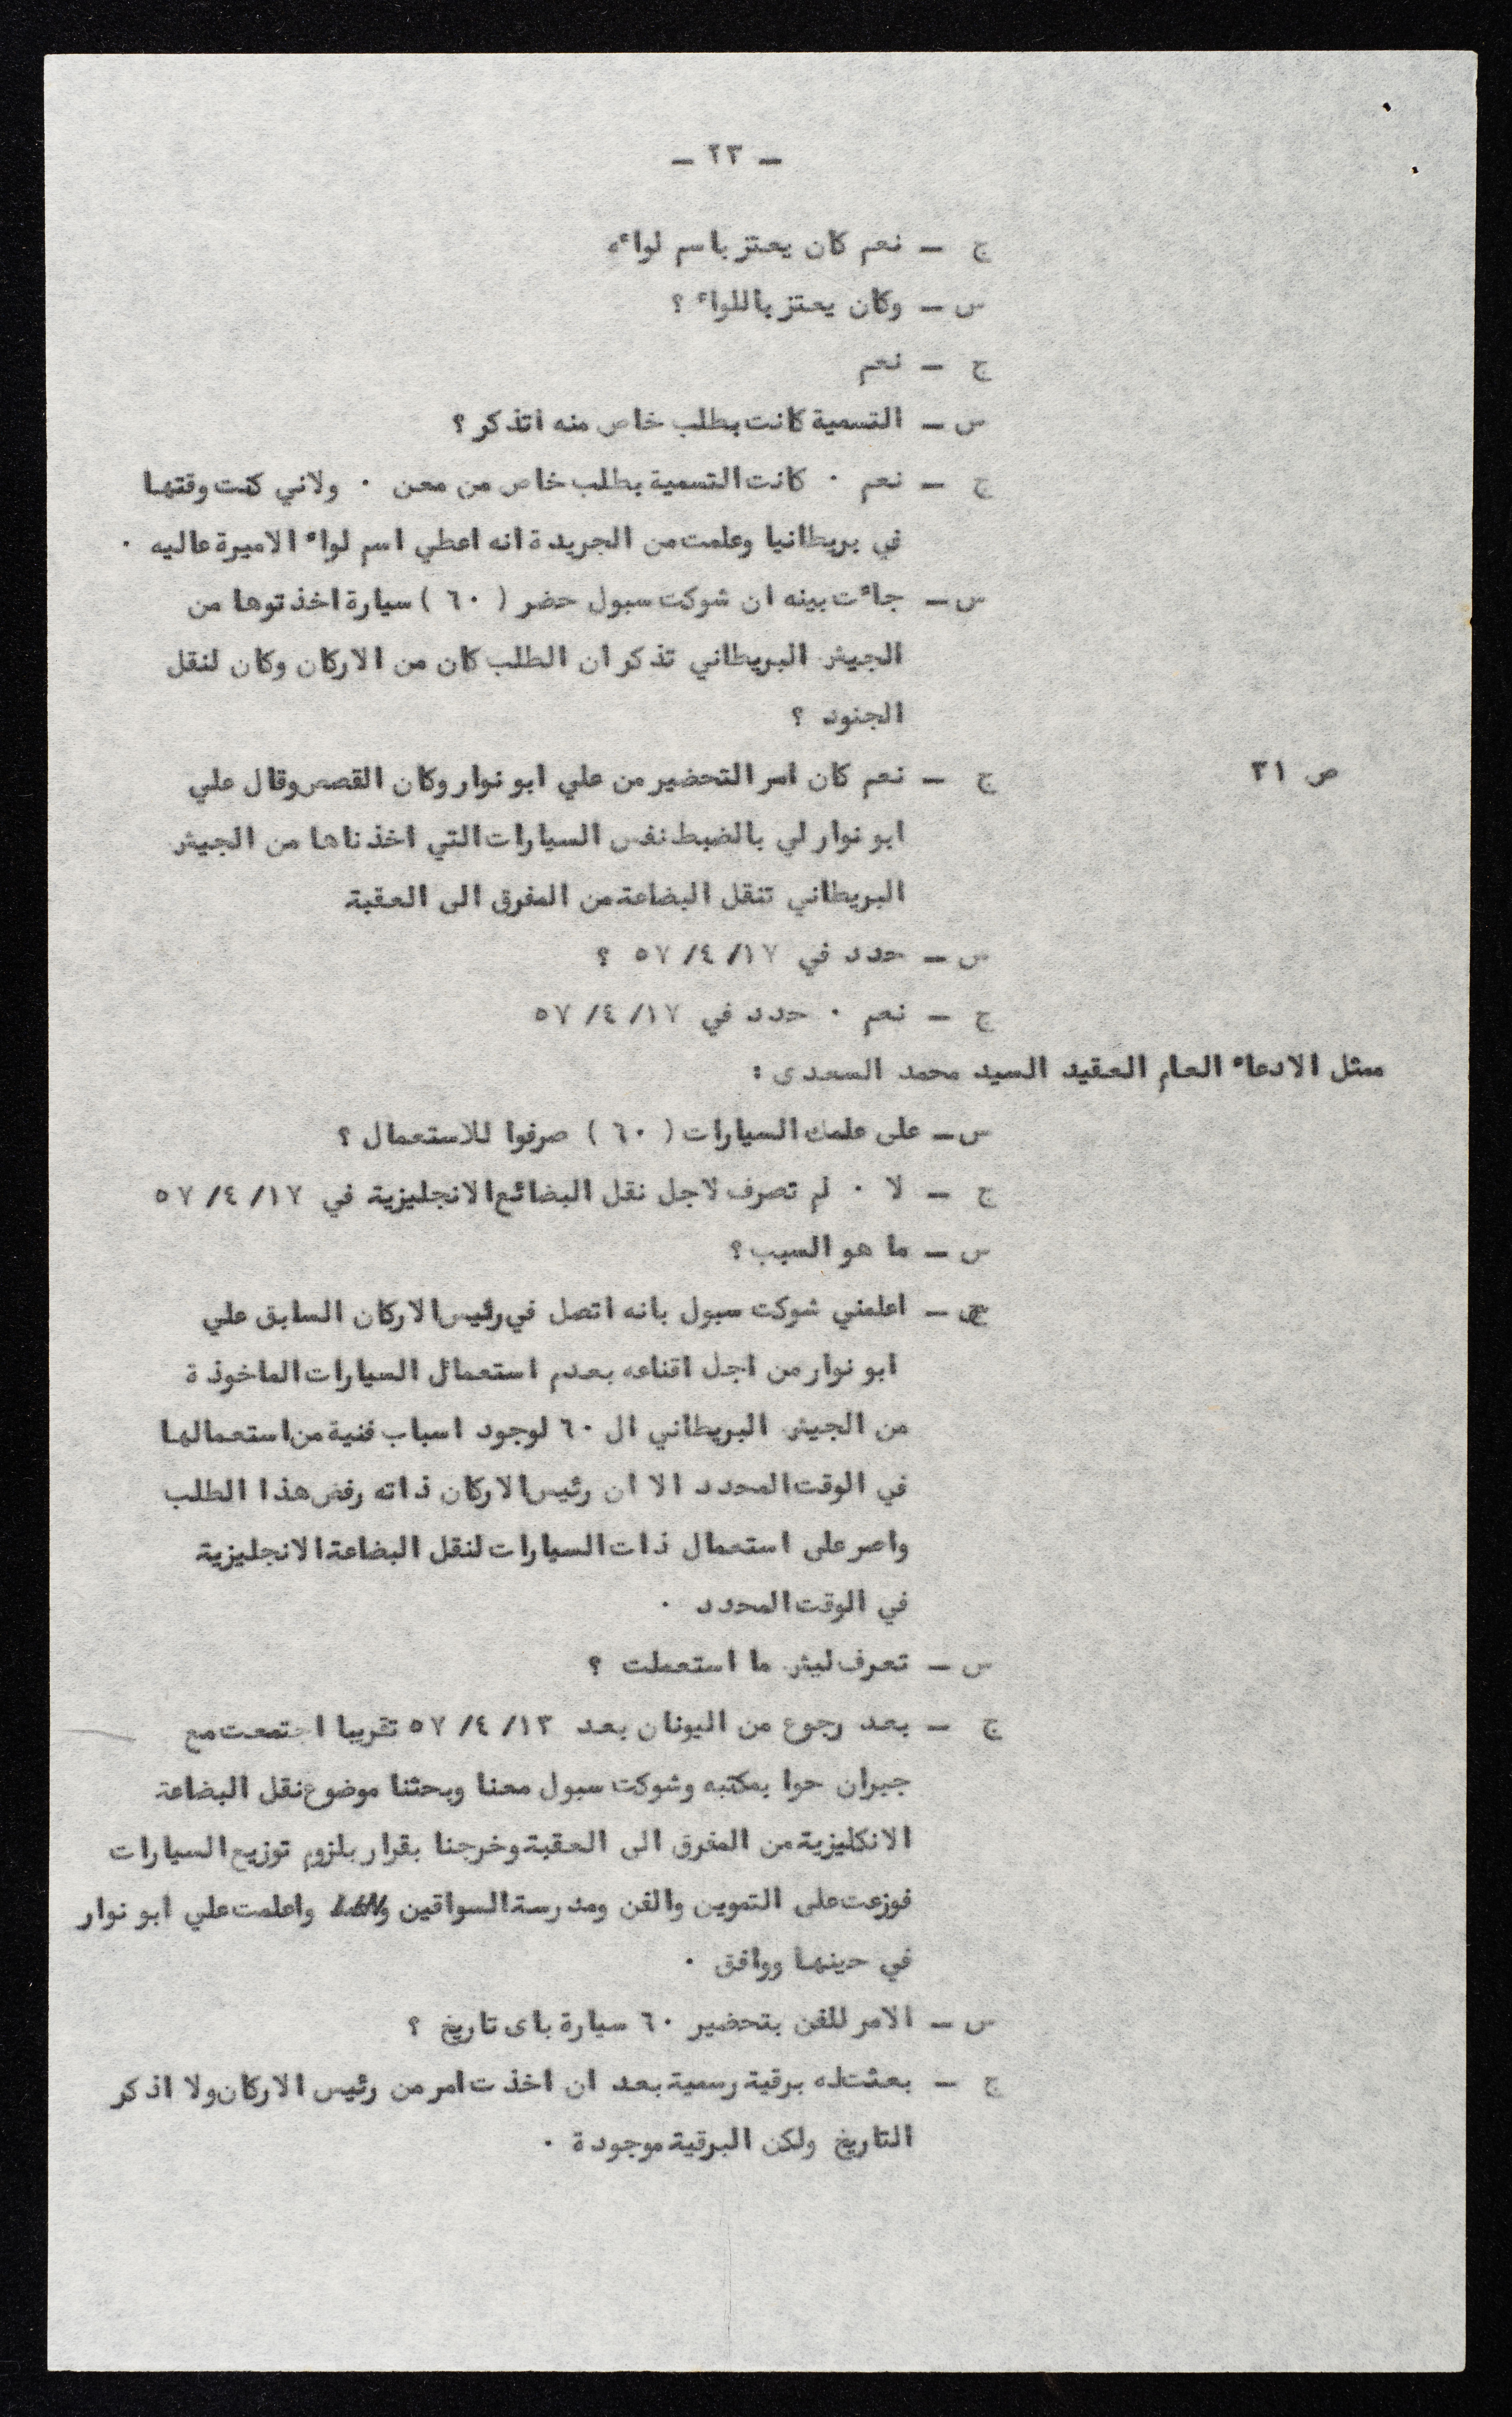 – ٢٣ –
ج – نعم كان يعتز باسم لوائه
س – وكان يعتز باللواء ؟
ج – نعم
س – التسمية كانت بطلب خاص منه اتذكر ؟
ج – نعم ٠ كانت التسمية بطلب خاص من معن ٠ ولاني كنت وقتها
في بريطانيا وعلمت من الجريدة انه اعطي اسم لواء الاميرة عاليه ٠
س – جاءت بينه ان شوكت سبول حضر ( ٦٠ ) سيارة اخذتوها من
الجيش البريطاني تذكر ان الطلب كان من الاركان وكان لنقل
الجنود ؟
ص ٣١ ج – نعم كان امر التحضير من علي ابو نوار وكان القصص وقال علي
ابو نوار لي بالضبط نفس السيارات التي اخذناها من الجيش
البريطاني تنقل البضاعة من المفرق الى العقبة
س – حدد في ١٧/ ٤/ ٥٧ ؟
ج – نعم ٠ حدد في ١٧/ ٤/ ٥٧
ممثل الادعاء العام العقيد السيد محمد السعدى :
س – على علمك السيارات ( ٦٠ ) صرفوا للاستعمال ؟
ج – لا ٠ لم تصرف لاجل نقل البضائع الانجليزية في ١٧/ ٤/ ٥٧
س – ما هو السبب ؟
ج – اعلمني شوكت سبول بانه اتصل في رئيس الاركان السابق علي
ابو نوار من اجل اقناعه بعدم استعمال السيارات الماخوذة
من الجيش البريطاني ال ٦٠ لوجود اسباب فنية من استعمالها
في الوقت المحدد الا ان رئيس الاركان ذاته رفض هذا الطلب
واصر على استعمال ذات السيارات لنقل البضاعة الانجليزية
في الوقت المحدد ٠
س – تعرف ليش ما استعملت ؟
ج – بعد رجوع من اليونان بعد ١٣/ ٤/ ٥٧ تقريبا اجتمعت مع
جبران حوا بمكتبه وشوكت سبول معنا وبحثنا موضوع نقل البضاعة
الانكليزية من المفرق الى العقبة وخرجنا بقرار بلزوم توزيع السيارات
فوزعت على التموين والفن ومدرسة السواقين واعلمت علي ابو نوار
في حينها ووافق ٠
س – الامر للفن بتحضير ٦٠ سيارة باى تاريخ ؟
ج – بعثت له برقية رسمية بعد ان اخذت امر من رئيس الاركان ولا اذكر
التاريخ ولكن البرقية موجودة ٠